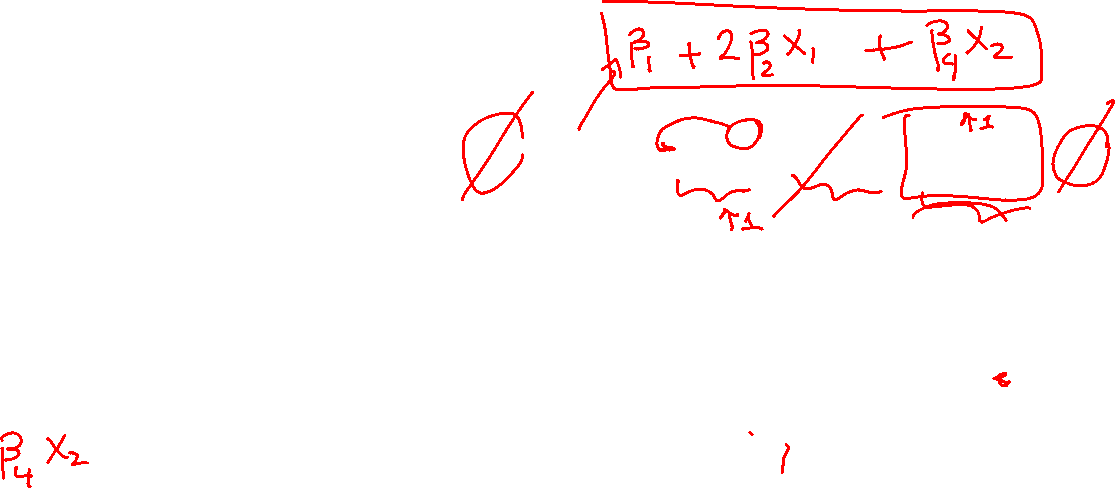 β₁ + 2β₂X₁ + β₄X₂
∅ ↑1 ∅
↑1
β₄X₂